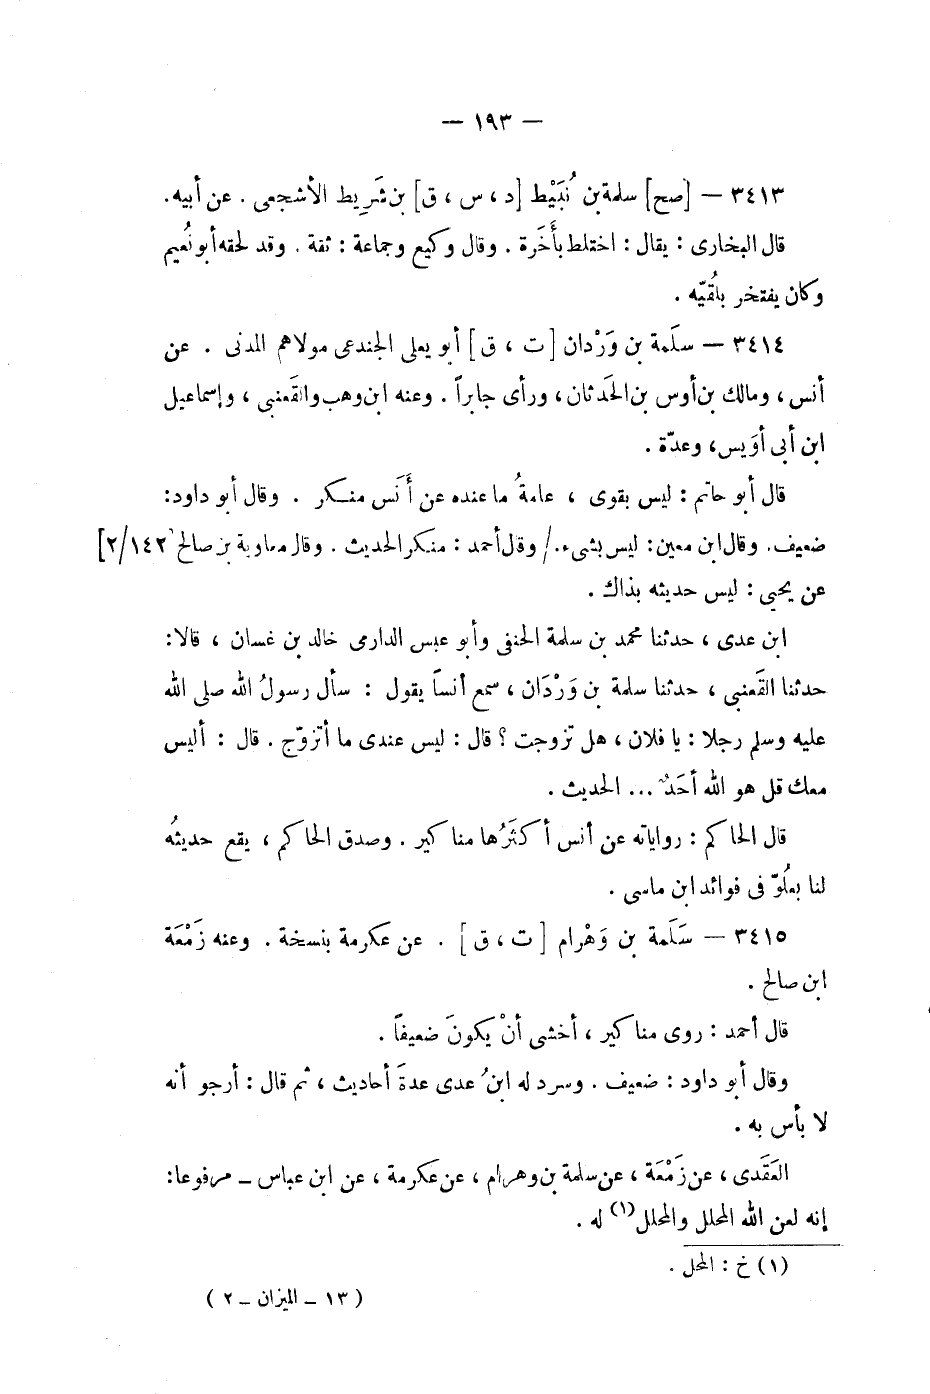 — ١٩٣ —
٣٤١٣ — [صح] سلمة بن نُبَيْط [د ، س ، ق] بن شَرِيط الأشجعى . عن أبيه .
قال البخارى : يقال : اختلط بأَخَرة . وقال وكيع وجماعة : ثقة . وقد لحقه أبو نُعيم
وكان يفتخر بلُقيّه .
٣٤١٤ — سلَمة بن وَرْدان [ت ، ق] أبو يعلى الجندعى مولاهم المدنى . عن
أنس ، ومالك بن أوس بن الحَدثان ، ورأى جابراً . وعنه ابن وهب والقَعنبى ، وإسماعيل
ابن أبى أوَيس ، وعدّة .
قال أبو حاتم : ليس بقوى ، عامةُ ما عنده عن أَنَس منكر . وقال أبو داود :
ضعيف . وقال ابن معين : ليس بشىء . / وقال أحمد : منكر الحديث . وقال معاوية بن صالح [٢/١٤٢]
عن يحيى : ليس حديثه بذاك .
ابن عدى ، حدثنا محمد بن سلمة الحنفى وأبو عبس الدارمى خالد بن غسان ، قالا :
حدثنا القَعنبى ، حدثنا سلمة بن وَرْدَان ، سمع أنساً يقول : سأل رسولُ الله صلى الله
عليه وسلم رجلا : يا فلان ، هل تزوجت ؟ قال : ليس عندى ما أتزوّج . قال : أليس
معك قل هو الله أحَدٌ ... الحديث .
قال الحاكم : رواياته عن أنس أكثَرُها مناكير . وصدق الحاكم ، يقع حديثُه
لنا بعُلوّ فى فوائد ابن ماسى .
٣٤١٥ — سَلَمة بن وَهْرام [ت ، ق] . عن عكرمة بنسخة . وعنه زَمْعَة
ابن صالح .
قال أحمد : روى مناكير ، أخشى أنْ يكونَ ضعيفاً .
وقال أبو داود : ضعيف . وسرد له ابنُ عدى عدةَ أحاديث ، ثم قال : أرجو أنه
لا بأس به .
العَقَدى ، عن زَمْعَة ، عن سلمة بن وهرام ، عن عكرمة ، عن ابن عباس ــ مرفوعا :
إنه لعن الله المحلل والمحلل(١) له .
(١) خ : المحل .
( ١٣ ــ الميزان ــ ٢ )